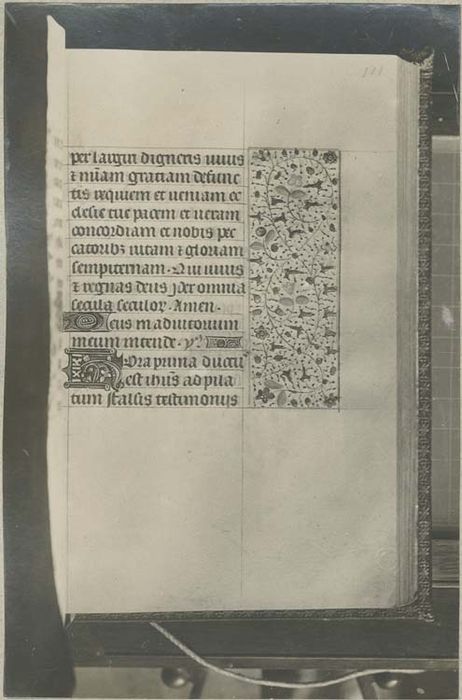 111
per largiri digneris uiuis
⁊ miam gratiam defunc
tis requiem et ueniam ec
clesie tue pacem et ueram
concordiam et nobis pec
catoribz uitam ⁊ gloriam
sempiternam. Qui uiuis
⁊ regnas deus per omnia
secula seculor. Amen.
Deus in adiutorium
meum intende. ỹ.
Hora prima ductu
est ihus ad pila
tum falsis testimonijs